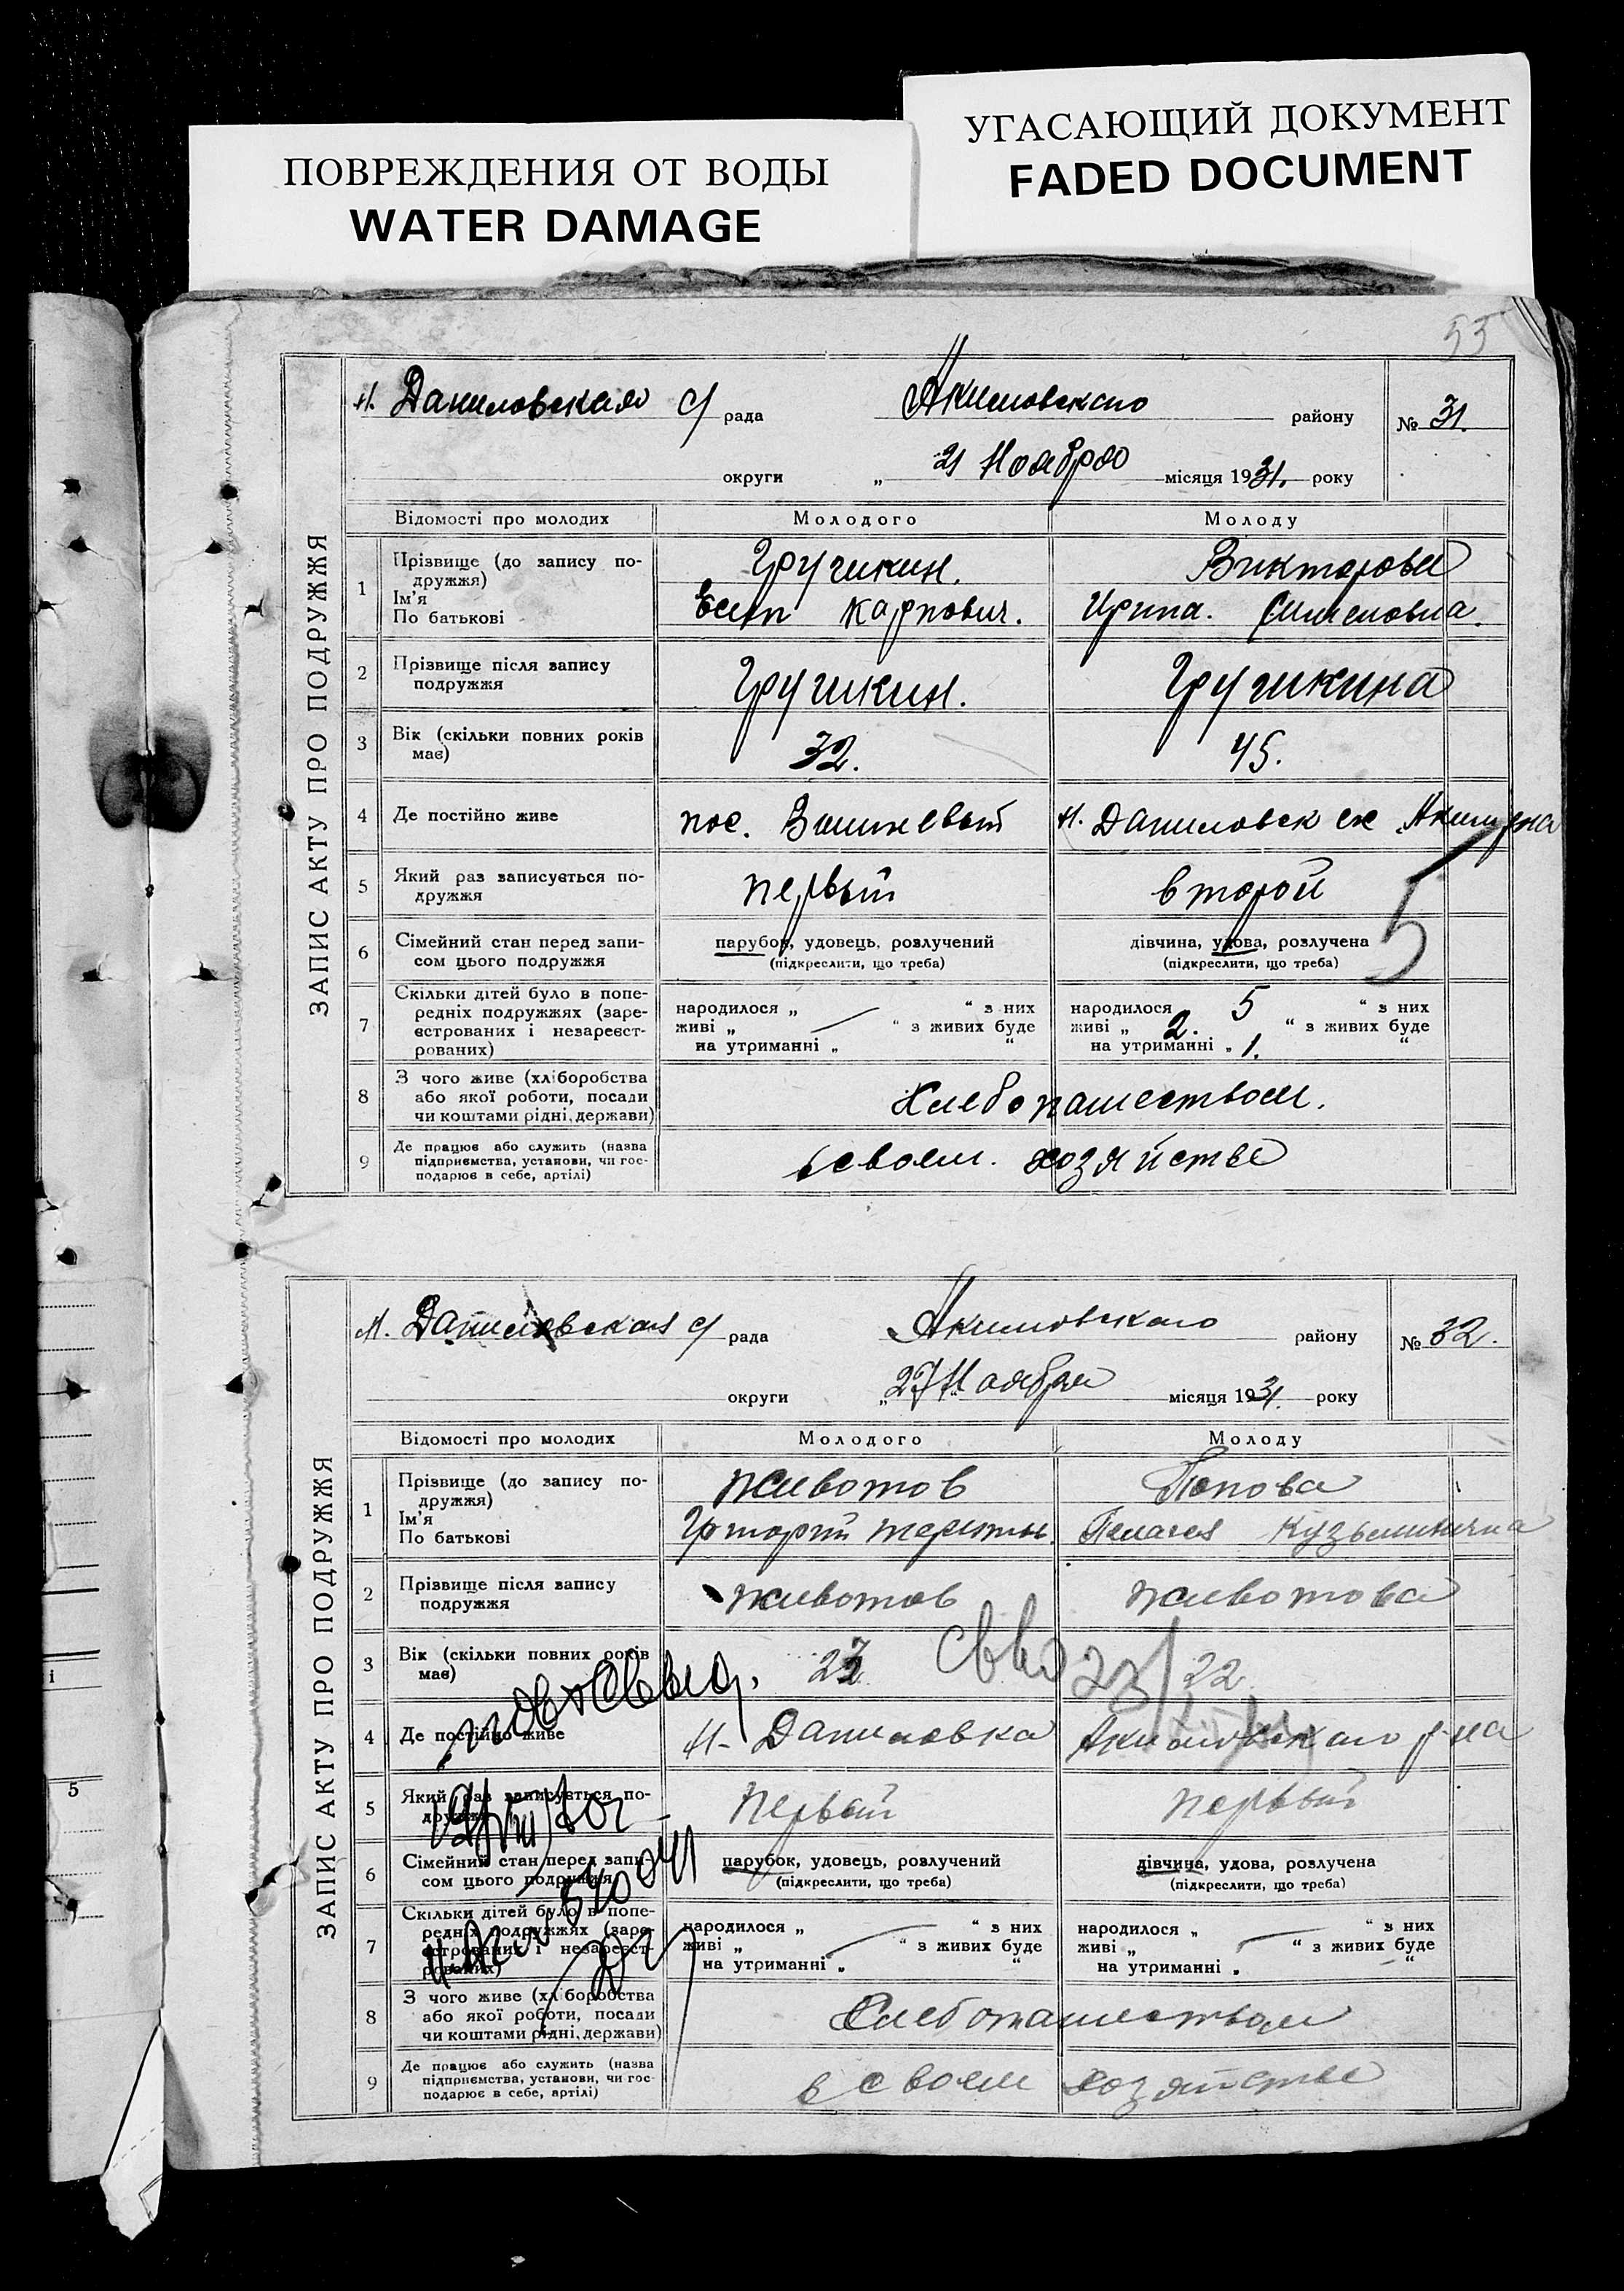 УГАСАЮЩИЙ ДОКУМЕНТ
FADED DOCUMENT
ПОВРЕЖДЕНИЯ ОТ ВОДЫ
WATER DAMAGE
55
ЗАПИС АКТУ ПРО ПОДРУЖЖЯ
Н. Даниловская с/ рада Акимовского району № 31.
округи „ 21 Ноября місяця 1931. року
Відомості про молодих Молодого Молоду
1 Прізвище (до запису по-
дружжя) Гручикин. Викторова
Ім'я
По батькові Есип Карпович. Ирина. Симеловна.
2 Прізвище після запису
подружжя Гручикин. Гручикина
3 Вік (скільки повних років
має) 32. 45.
4 Де постійно живе пос. Вишневый Н. Даниловск ск Аким рна
5 Який раз записується по-
дружжя первый второй
6 Сімейний стан перед запи-
сом цього подружжя
парубок, удовець, розлучений
(підкреслити, що треба)
дівчина, удова, розлучена
(підкреслити, що треба)
5
7 Скільки дітей було в попе-
редніх подружжях (заре-
єстрованих і незареєст-
рованих)
народилося „ — “ з них
живі „ “ з живих буде
на утриманні „ “
народилося 5 “ з них
живі „ 2. “ з живих буде
на утриманні „ 1. “
8 З чого живе (хліборобства
або якої роботи, посади
чи коштами рідні, держави)
Хлебопашеством.
9 Де працює або служить (назва
підприємства, установи, чи гос-
подарює в себе, артілі)
в своем. хозяйстве
ЗАПИС АКТУ ПРО ПОДРУЖЖЯ
Н. Даниловская с/ рада Акимовского району № 32.
округи „ 27 Ноября місяця 1931. року
Відомості про молодих Молодого Молоду
1 Прізвище (до запису по-
дружжя) Животов Попова
Ім'я
По батькові Григорий Пелагея Кузьминична
2 Прізвище після запису
подружжя Животов Животова
3 Вік (скільки повних років
має) 22
4 Де постійно живе Н- Даниловка Акимовского р-на
5 Який раз записується по-
дружжя Первый первый
6 Сімейний стан перед запи-
сом цього подружжя
парубок, удовець, розлучений
(підкреслити, що треба)
дівчина, удова, розлучена
(підкреслити, що треба)
7 Скільки дітей було в попе-
редніх подружжях (заре-
єстрованих і незареєст-
рованих)
народилося „ — “ з них
живі „ “ з живих буде
на утриманні „ “
народилося „ — “ з них
живі „ “ з живих буде
на утриманні „ “
8 З чого живе (хліборобства
або якої роботи, посади
чи коштами рідні, держави)
Хлебопашеством
9 Де працює або служить (назва
підприємства, установи, чи гос-
подарює в себе, артілі)
в своем хозяйстве
5